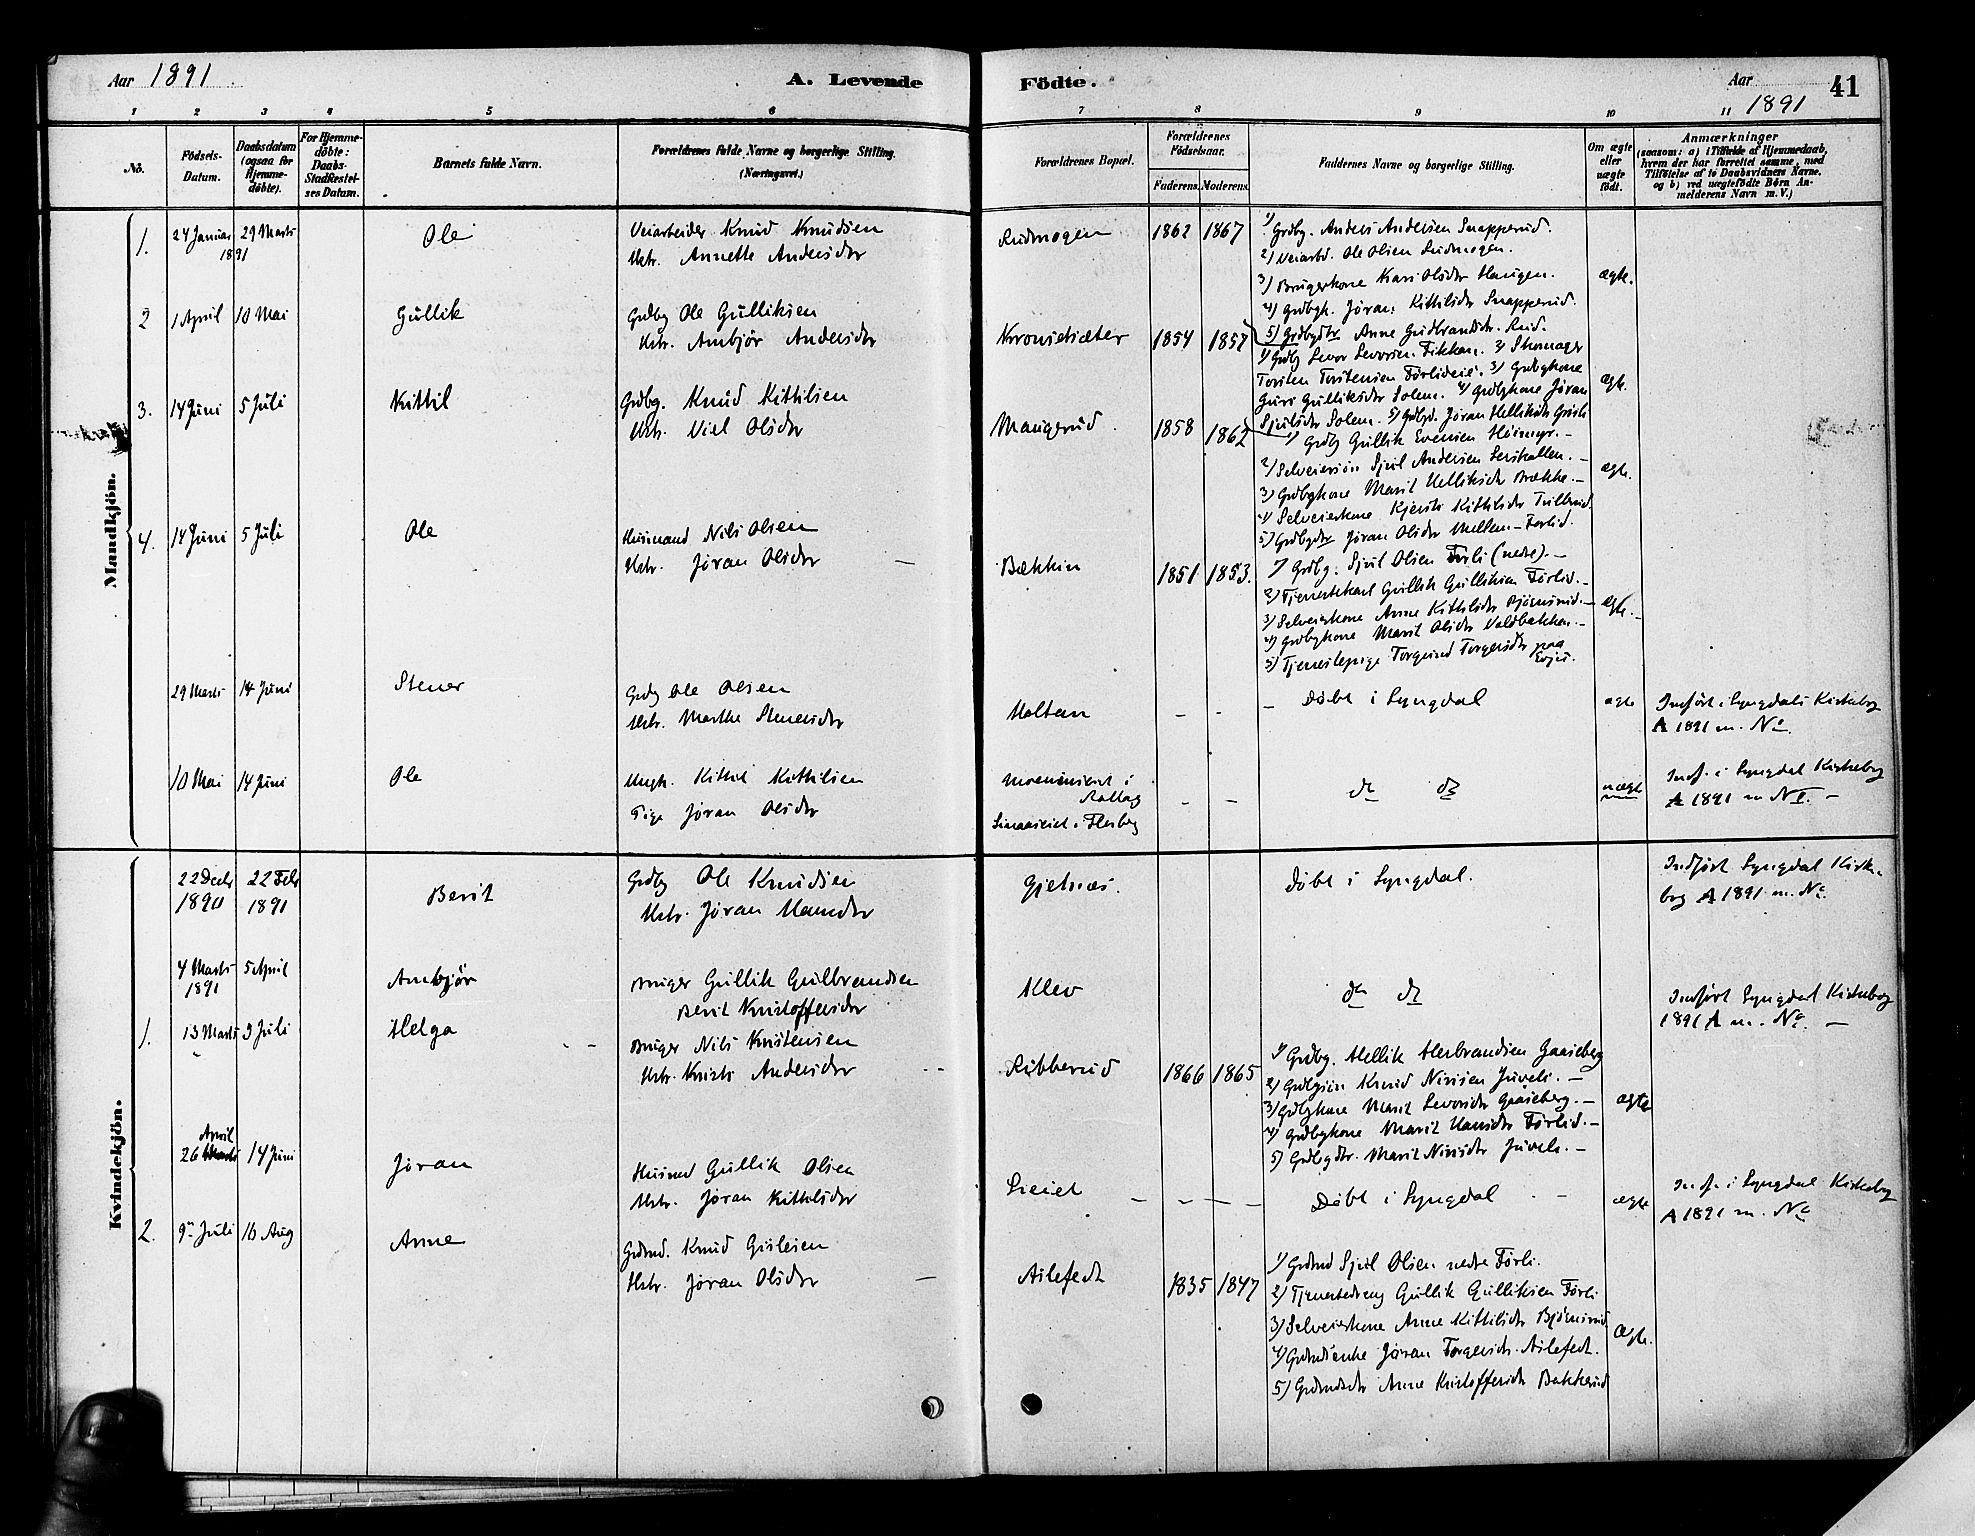 Aar 1891
A. Levende
Födte.
Aar 1891
41
1 2 3 4 5 6 7 8 9 10 11
No.
Födsels-
Datum.
Daabsdatum
(ogsaa for
Hjemme-
döbte).
For Hjemme-
döbte:
Daabs-
Stadfæstel-
ses Datum.
Barnets fulde Navn.
Forældrenes fulde Navne og borgerlige Stilling.
(Næringsvei.)
Forældrenes Bopæl.
Forældrenes
Födselsaar.
Faderens. Moderens.
Faddernes Navne og borgerlige Stilling.
Om ægte
eller
uægte
født.
Anmærkninger
(saasom: a) i Tilfælde af Hjemmedaab,
hvem der har forrettet samme, med
Tilföielse af to Daabsvidners Navne.
og b) ved uægtefödte Börn An-
melderens Navn m. V.)
Mandkjön.
1. 24 Januar 1891 29 Marts Ole
Veiarbeider Knud Knudsen
Hstr. Annette Andersdtr
Rudmogen 1862 1867
1) Grdbg. Anders Andersen Snapperud.
2) Veiarbd. Ole Olsen Rudmogen.
3) Brugerkone Kari Olsdtr Haugen.
4) Grdbgk. Jøran Kittilsdtr Snapperud.
5) Grdbgdtr Anne Gudbrandsdtr. Rud.
ægte.
2 1 April 10 Mai Gullik
Grdbg Ole Gulliksen
Hstr. Ambjør Andersdtr
1854 1857
1) Grdbg Levor Levorsen Fikkan. 2) Skomager
Torsten Torstensen Førlideie. 3) Grdbgkone
Guri Gulliksdtr Solem. 4) Grdbgkone Jøran
Sjulsdtr Solem. 5) Grdbgd. Jøran Helliksdtr
ægt.
3. 14 Juni 5 Juli Kittil
Grdbg. Knud Kittilsen
Hstr. Olsdtr
Maugerud. 1858 1862
1) Grdbg Gullik Evensen Høimyr. -
2) Selveiersøn Sjul Andersen
3) Grdbgkone Marit Helliksdtr Bække. -
4) Selveierkone Kjersti Kittilsdtr
5) Grdbgdtr Jøran Olsdtr Mellem-Førlid.
ægte.
4. 14 Juni 5 Juli Ole
Husmand Nils Olsen
Hstr. Jøran Olsdtr
Bækkin 1851 1853.
1) Grdbg. Sjul Olsen Førli (nedre). -
2) Tjenestekarl Gullik Gulliksen Førlid. -
3) Selveierkone Anne Kittilsdtr Bjørnsrud. -
4) Grdbgkone Marit Olsdtr
5) Tjenestepige Torgersdtr paa
Evju.
ægte.
29 Marts 14 Juni Stener
Grdbg Ole Olsen
Hstr. Marthe Stenersdtr
Moltan - -
- Døbt i Lyngdal
ægte
Indført i Lyngdals Kirkebog
A 1891 m. No.
10 Mai 14 Juni Ole
Ungk. Kittil Kittilsen
Pige Jøran Olsdtr
i
Rollag
i Flesberg
do do
uægte
Indf. i Lyngdal Kirkebog
A 1891 m No 1. -
Kvindekjön.
22 Decbr 1890 22 Febr 1891 Berit
Grdbg Ole Knudsen
Hstr. Jøran Hansdtr
Gjetnæs.
Døbt i Lyngdal.
Indført Lyngdal Kirke-
bog A 1891 m. No.
4 Marts 1891 5 April Ambjør
Bruger Gullik Gulbrandsen
Berit Kristoffersdtr
Klev
do do
Indført Lyngdal Kirkebog
1891 A m. No. -
1. 13 Marts 3 Juli Helga
Bruger Nils Kristensen
Hstr. Kristi Andersdtr
Ribberud 1866 1865
1) Grdbg. Hellik Herbrandsen Gaaseberg
2) Grdbgsøn Knud Nirisen Juveli. -
3) Grdbgkone Marit Levorsdtr Gaaseberg. -
4) Grdbgkone Marit Hansdtr Førlid. -
5) Grdbgdtr. Marit Nirisdtr Juveli. -
ægte
26 April 14 Juni Jøran
Husmd Gullik Olsen
Hstr. Jøran Kittilsdtr
Lieiet - - - -
Døbt i Lyngdal -
ægte
Indf. i Lyngdal Kirkebog
A 1891 m. No
2. 9n Juli 16 Aug Anne
Grdmd. Knud Gislesen
Hstr. Jøran Olsdtr
Ailefedt 1835 1847
1) Grdmd Sjul Olsen nedre Førli.
2) Tjenestedreng Gullik Gulliksen Førli
3) Selveierkone Anne Kittilsdtr Bjørnsrud
4) Grdmdenke Jøran Torgersdtr. Ailefedt.
5) Grdmdsdtr Anne Kristoffersdtr Bakkerud
ægte.